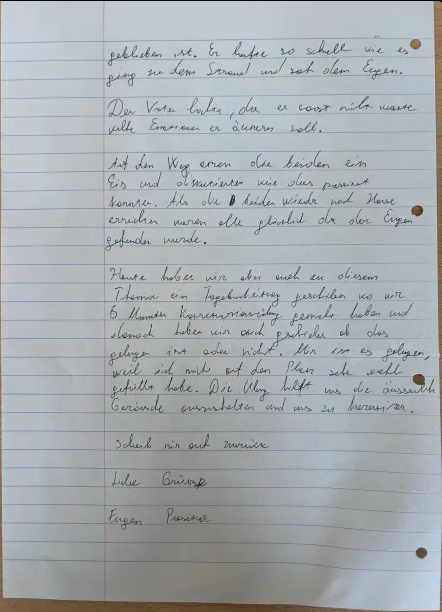 geblieben ist. Er laufte so schell wie es
ging zu dem Strand und sah dem Eugen.
Der Vater lachte, da er sonst nicht wuste
welche Emotionen er äusern soll.
Auf den Weg assen die beiden ein
Eis und diskutierten wie das passiert
konnte. Als die beiden wieder nach Hause
erreichen waren alle glücklich da der Eugen
gefunden wurde.
Heute haben wir aber auch zu diesem
Thema ein Tagebucheintrag geschrieben wo wir
6 Minuten gemacht haben und
danach haben wir auch geschrieben ob das
gelugen ist oder nicht. Mir ist es gelugen,
weil ich mich auf den Platz sehr wohl
gefühlt habe. Die Übung hilft uns die
Geräusche auszuhalten und uns zu
Scheib mir auch zurück
Liebe Grüsse
Eugen